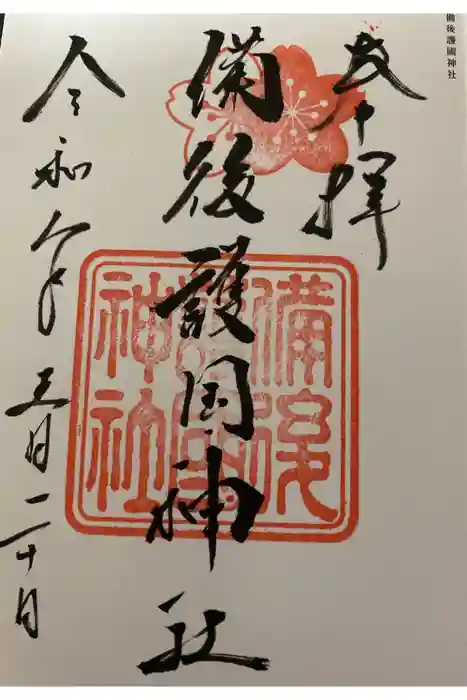 備後護國神社
奉拝
備後護国神社
備後
護國
神社
令和年三月二十日